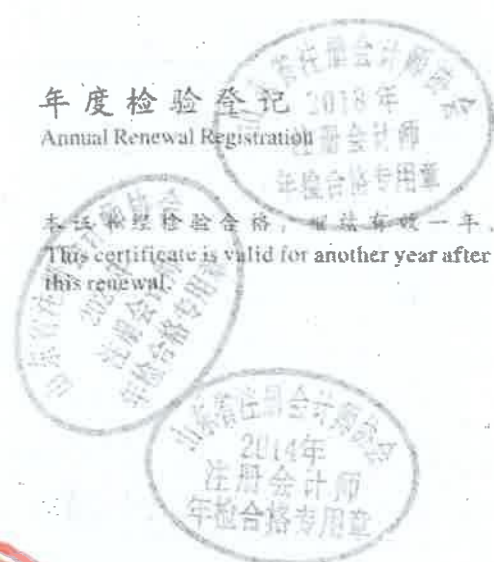 年度检验登记
Annual Renewal Registration
本证书经检验合格，继续有效一年。
This certificate is valid for another year after
this renewal.
山东省注册会计师协会
2018年
注册会计师
年检合格专用章
山东省注册会计师协会
注册会计师
年检合格专用章
山东省注册会计师协会
2014年
注册会计师
年检合格专用章